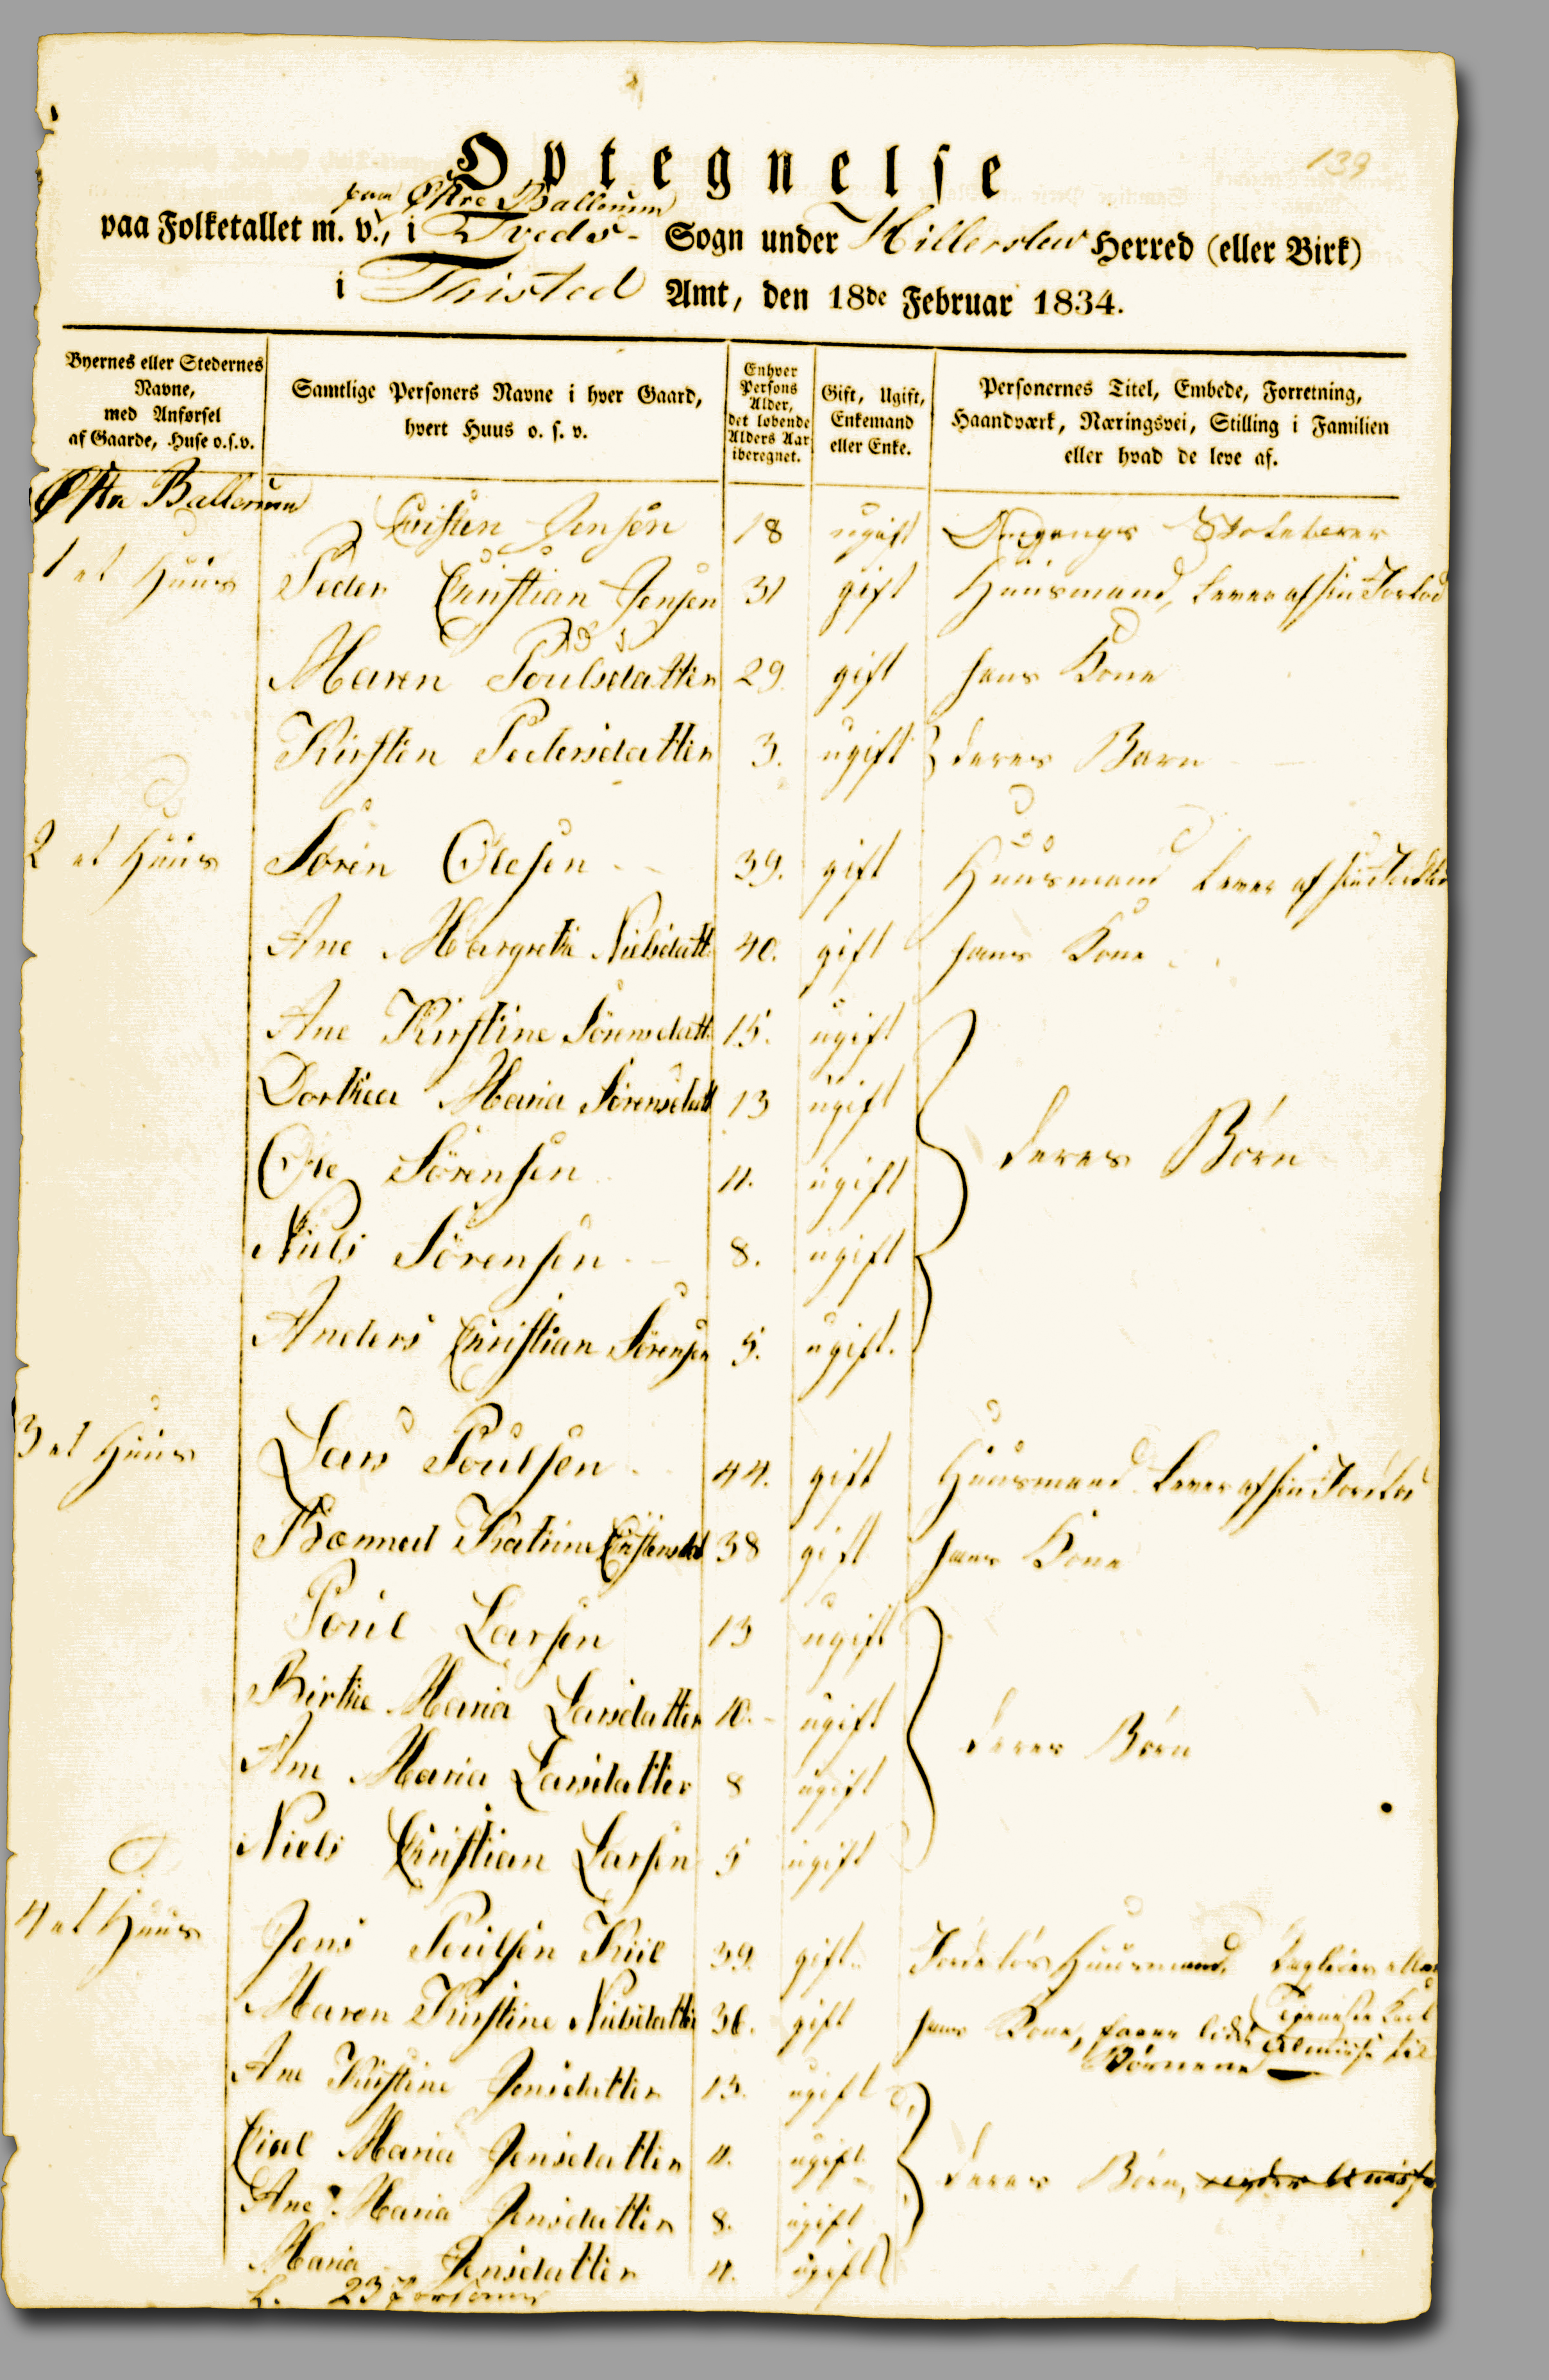 139
Optegnelse
paa Østre Ballerum
paa Folketallet m. v., i Tveds- Sogn under Hillerslev Herred (eller Birk)
i Thisted Amt, den 18de Februar 1834.
Byernes eller Stedernes Navne, med Anførsel af Gaarde, Huse o.s.v.
Samtlige Personers Navne i hver Gaard, hvert Huus o. s. v.
Enhver Persons Alder, det løbende Alders Aar iberegnet.
Gift, Ugift, Enkemand eller Enke.
Personernes Titel, Embede, Forretning, Haandværk, Næringsvei, Stilling i Familien eller hvad de leve af.
Østre Ballerum
Christen Jensen 18 ugift Omgangs Skolelærer
1 et Huus Peder Christian Jensen 31 gift Huusmand, lever af sin Jorlod
Maren Poulsdatter 29. gift hans Kone
Kirsten Pedersdatter 3. ugift deres Barn
2 et Huus Søren Olesen 39. gift Huusmand lever af sin Jordlod
Ane Margrethe Nielsdatt 40. gift hans Kone
Ane Kirstine Sörensdatt 15. ugift
Dorthea Maria Sörensdatt 13 ugift
Ole Sörensen 11. ugift deres Børn
Niels Sörensen 8. ugift
Anders Christian Sörensen 5. ugift.
3 et Huus Lars Poulsen 44. gift Huusmand lever af sin Jordlod
Katrine Christensdat 38 gift hans Kone
Poul Larsen 13 ugift
Birthe Maria Larsdatter 10. ugift
deres Børn
Ane Maria Larsdatter 8 ugift
Niels Christian Larsen 5 ugift
4 et Huus Jens Poulsen Kiil 39. gift. Jordeløs Huusmand. Dagleier eller
Tjeneste Karl
Maren Kirstine Nielsdatter 36. gift hans Kone, faaer lidt Almisse til
Børnene
Ane Kirstine Jensdatter 13. ugift
Maria Jensdatter 11. ugift deres Børn,
Ane Maria Jensdatter 8. ugift
Maria Jensdatter 4. ugift
L. 23 Personer